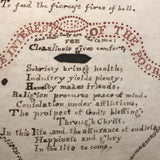 T. feed the fiercest fires of hell.
OF THE
FOR
Cleanliness gives comfort,
Sobriety brings health,
Industry yields plenty;
Honesty makes friends,
Religion procures peace of mind,
Consolation under afflictions,
The prospect of Gods blessing
Through Life.
In this Life and the assurance of out
Happiness and glory
In the life to come.